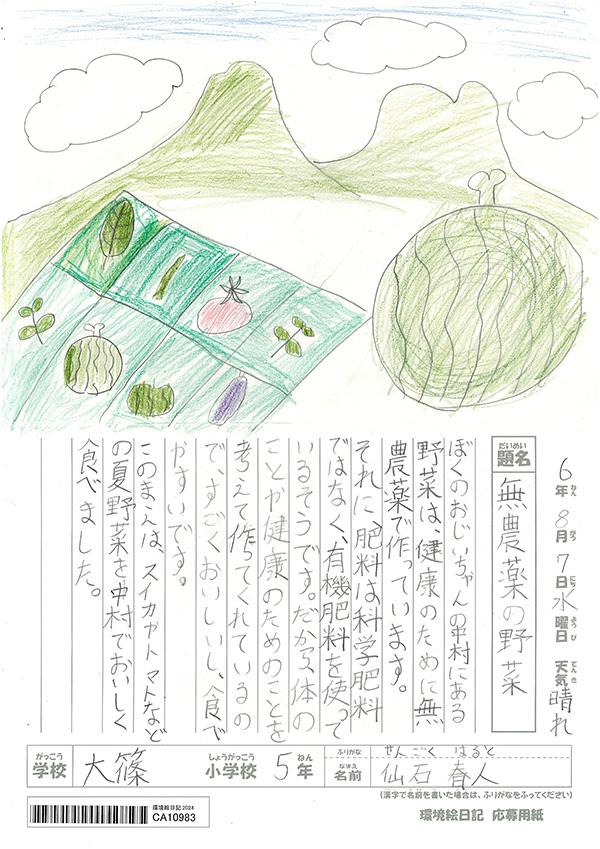 6年 8月 7日 水曜日 天気 晴れ
ねん がつ にち ようび てんき
だいめい
題名 無農薬の野菜
ぼくのおじいちゃんの中村にある
野菜は、健康のために無
農薬で作っています。
それに、肥料は科学肥料
ではなく、有機肥料を使って
いるそうです。だから、体の
ことが健康のためのことを
考えて作ってくれているの
で、すごくおいしいし、食べ
やすいです。
このまえは、スイカやトマトなど
の夏野菜を中村でおいしく
食べました。
がっこう しょうがっこう ねん ふりがな せんごく はると
学校 大篠 小学校 5年 なまえ 名前 仙石 春人
(漢字で名前を書いた場合は、ふりがなをふってください)
環境絵日記2024
CA10983
環境絵日記 応募用紙